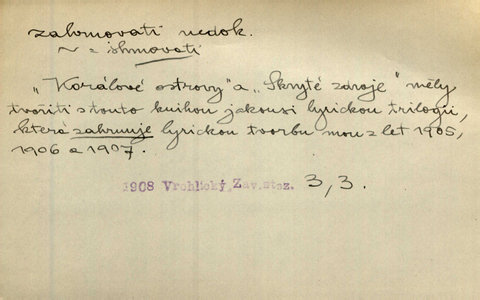 zahrnovati nedok.
~ = shrnovati
„Korálové ostrovy" a „Skryté zdroje" měly
tvořiti s touto knihou jakousi lyrickou trilogii,
která zahrnuje lyrickou tvorbu mou z let 1905,
1906 a 1907.
1908 Vrchlický, Zav.stez. 3,3.